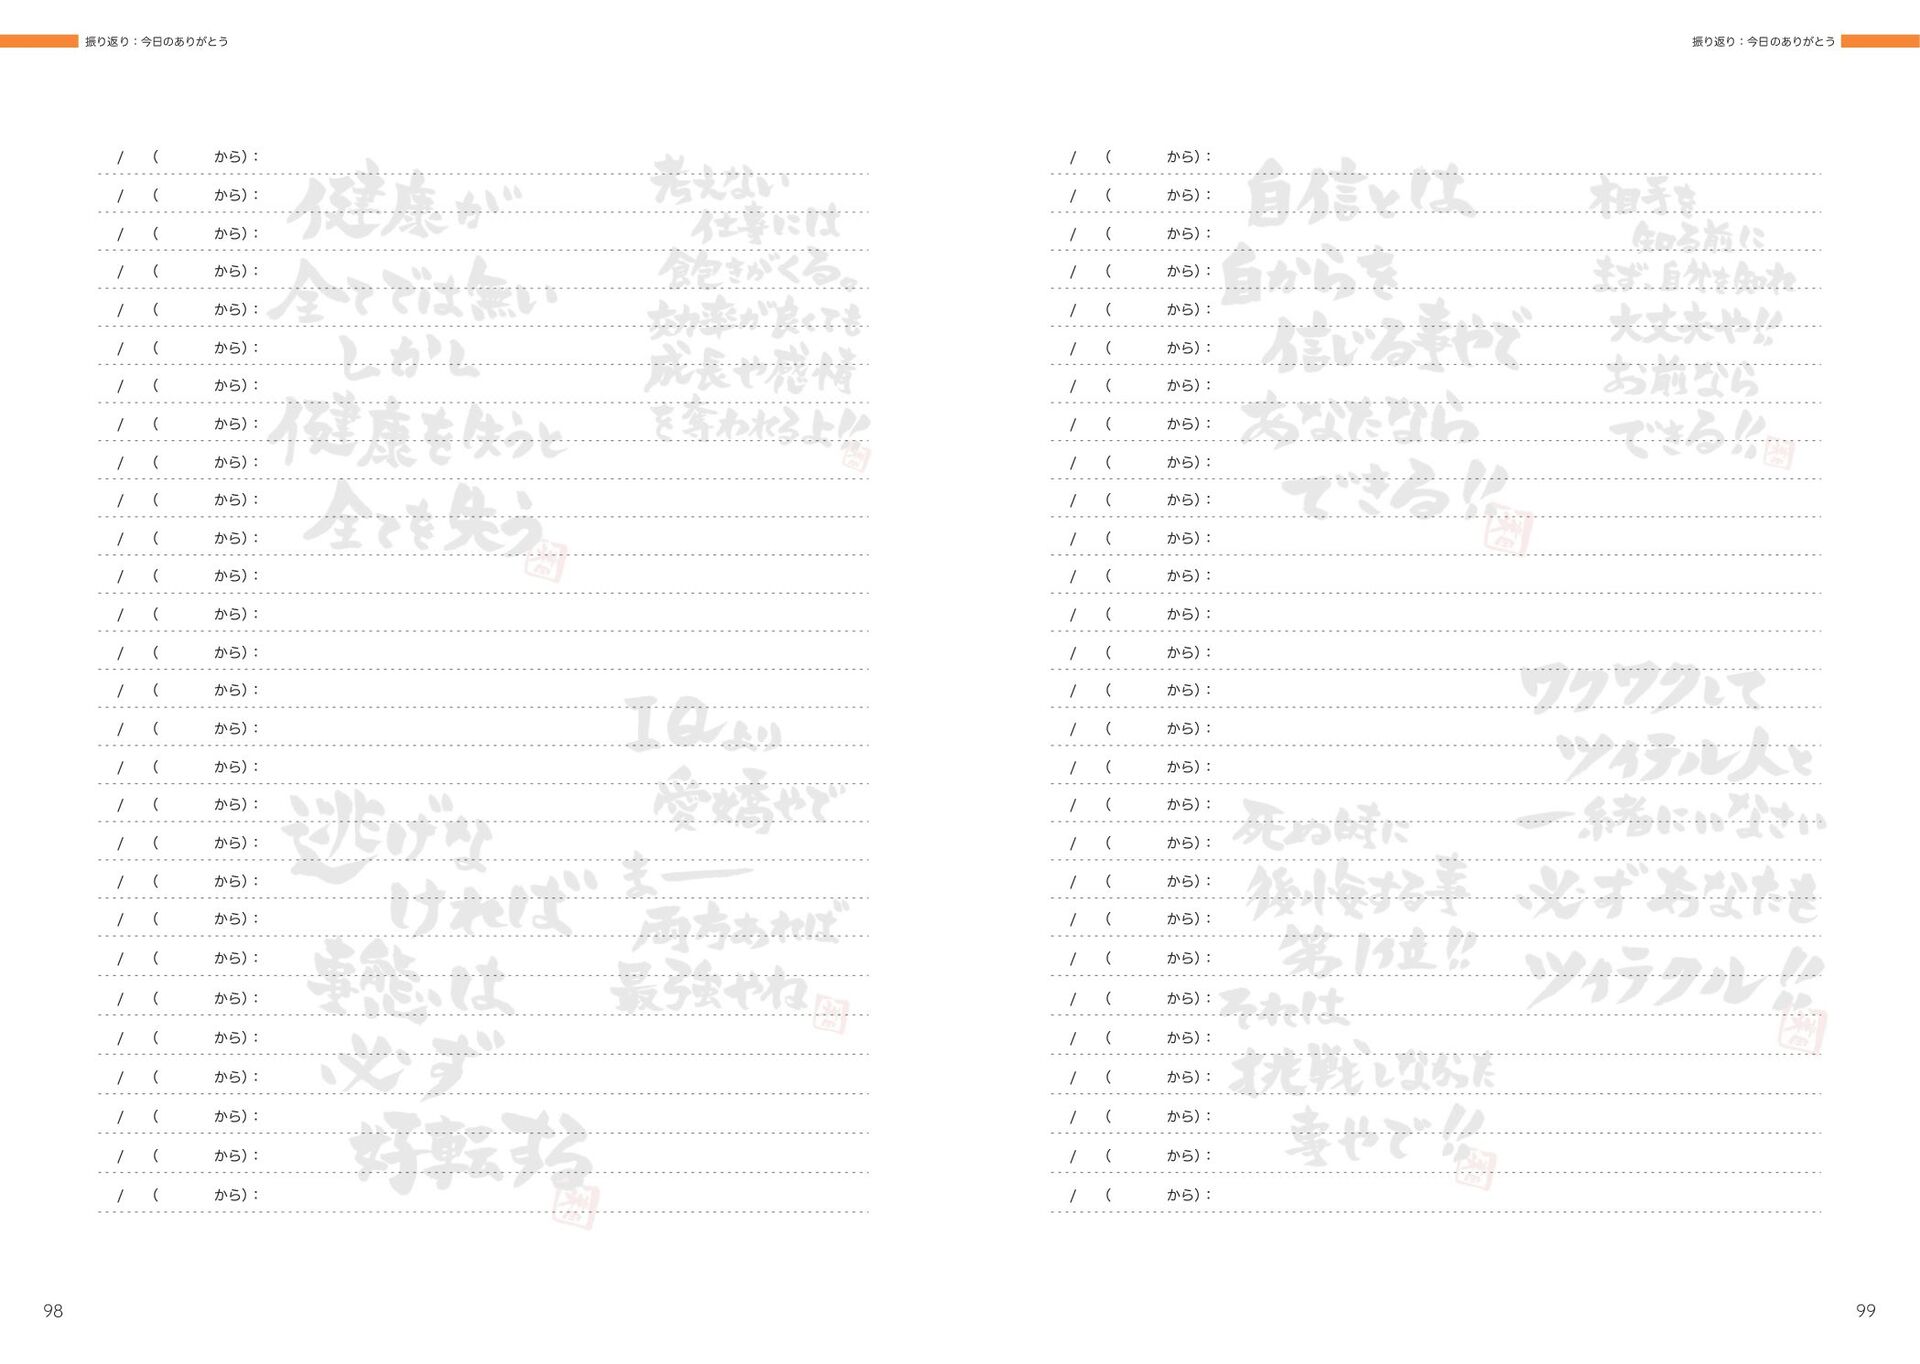 振り返り：今日のありがとう
/ （ から）：
/ （ から）：
/ （ から）：
/ （ から）：
/ （ から）：
/ （ から）：
/ （ から）：
/ （ から）：
/ （ から）：
/ （ から）：
/ （ から）：
/ （ から）：
/ （ から）：
/ （ から）：
/ （ から）：
/ （ から）：
/ （ から）：
/ （ から）：
/ （ から）：
/ （ から）：
/ （ から）：
/ （ から）：
/ （ から）：
/ （ から）：
/ （ から）：
/ （ から）：
/ （ から）：
/ （ から）：
健康が
全てでは無い
しかし
健康を失うと
全てを失う
考えない
仕事には
飽きがくる。
効率が良くても
成長や感情
を奪われるよ!!
逃げな
ければ
事態は
必ず
好転する
IQより
愛嬌やで
まー
両方あれば
最強やね
98
振り返り：今日のありがとう
/ （ から）：
/ （ から）：
/ （ から）：
/ （ から）：
/ （ から）：
/ （ から）：
/ （ から）：
/ （ から）：
/ （ から）：
/ （ から）：
/ （ から）：
/ （ から）：
/ （ から）：
/ （ から）：
/ （ から）：
/ （ から）：
/ （ から）：
/ （ から）：
/ （ から）：
/ （ から）：
/ （ から）：
/ （ から）：
/ （ から）：
/ （ から）：
/ （ から）：
/ （ から）：
/ （ から）：
/ （ から）：
自信とは
自からを
信じる事やで
あなたなら
できる!!
相手を
知る前に
まず、自分を知れ
大丈夫や!!
お前なら
できる!!
死ぬ時に
後悔する事
第1位!!
それは
挑戦しなかった
事やで!!
ワクワクして
ツイテル人と
一緒にいなさい
必ずあなたも
ツイテクル!!
99